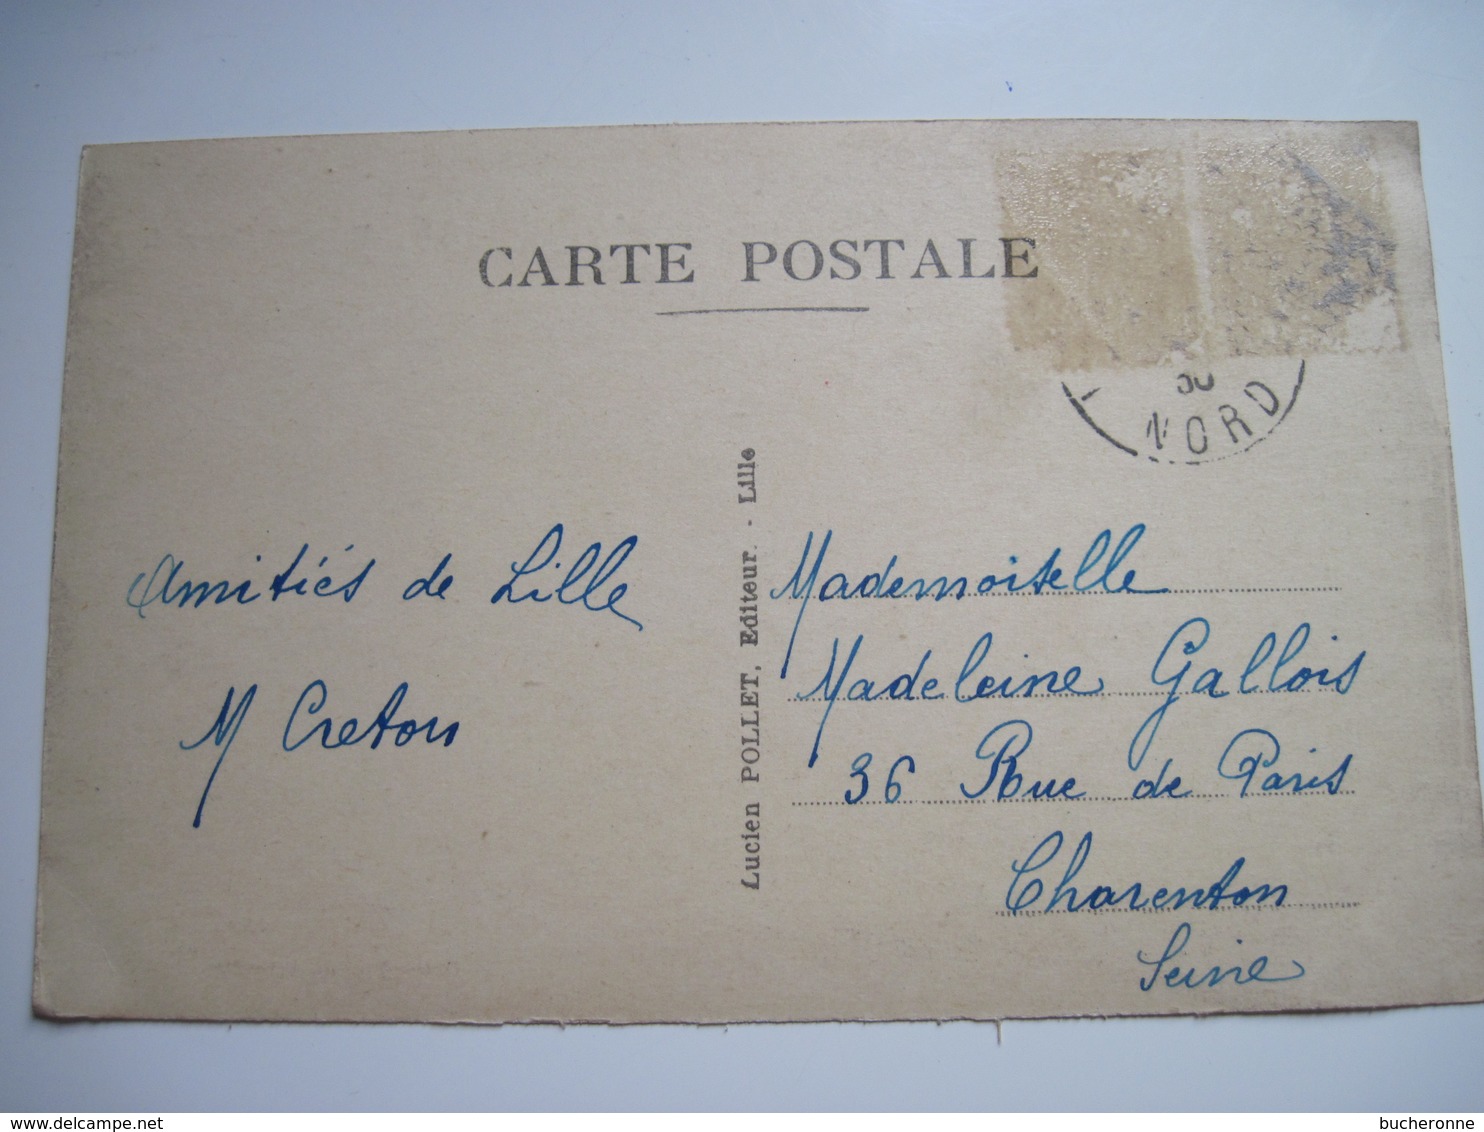 CARTE POSTALE
NORD
Amitiés de Lille
M Creton
Lucien POLLET, Editeur. - Lille
Mademoiselle
Madeleine Gallois
36 Rue de Paris
Charenton
Seine
delcampe.net
bucheronne